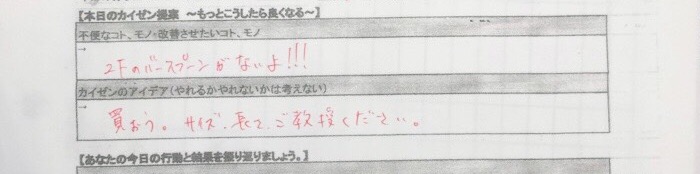 【本日のカイゼン提案　～もっとこうしたら良くなる～】
不便なコト、モノ・改善させたいコト、モノ
→
2Fのバースプーンがないよ!!!
カイゼンのアイデア(やれるかやれないかは考えない)
→
買おう。サイズ、長さ、ご教授ください。
【あなたの今日の行動と結果を振り返りましょう。】